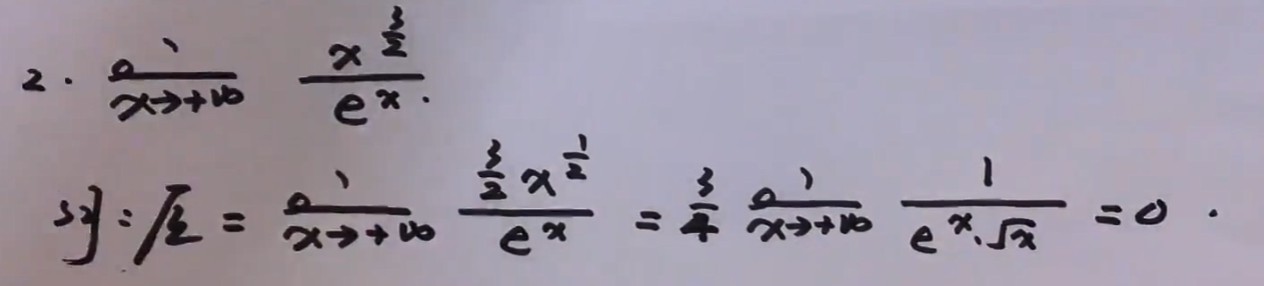 2. lim_{x→+∞} x^{3/2} / e^x.
解:原 = lim_{x→+∞} (3/2 x^{1/2}) / e^x = 3/4 lim_{x→+∞} 1 / (e^x·√x) = 0.